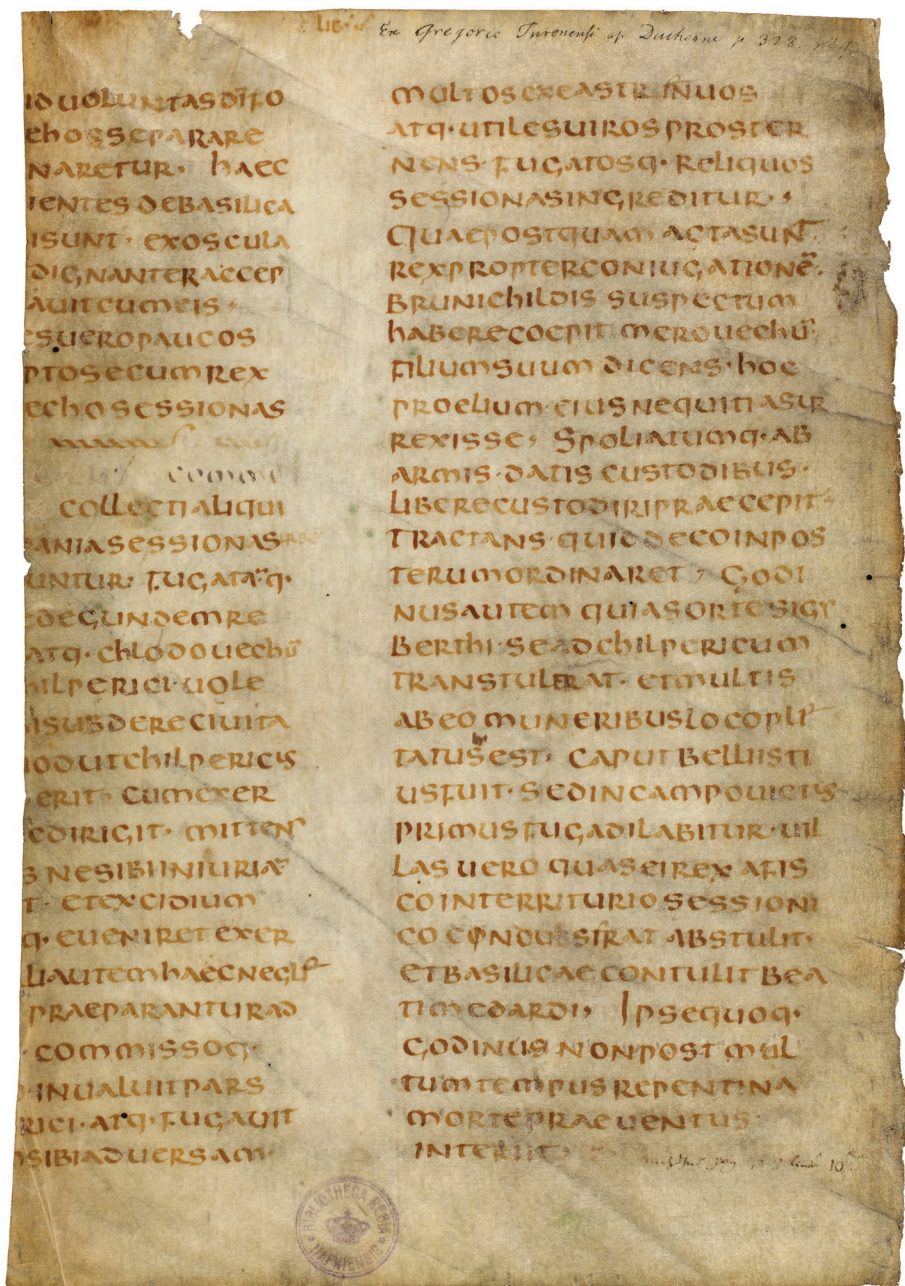 LIB·
Ex Gregorio Turonensi ap Duchesne p 328.
ID UOLUNTAS DĪ FO
EHOS SEPARARE
NARETUR· HAEC
IENTES DE BASILICA
ISUNT· EXOSCULA
DIGNANTER ACCEP
AUIT CUM EIS
ES UERO PAUCOS
PTO SECUM REX
ECHO SESSIONAS
COLLECTI ALIQUI
ANIA SESSIONAS
UNTUR· FUGATAQ·
EDEGUNDEM RE
ATQ· CHLODOUECHŪ
HILPERICI· UOLE
I SUBDERE CIUITA
OD UT CHILPERICUS
ERIT· CUM EXER
E DIRIGIT· MITTENS
S NE SIBI INIURIĀ
T· ET EXCIDIUM
Q· EUENIRET EXER
LI AUTEM HAEC NEGLE
PRAEPARANTUR AD
COMMISSOQ·
INUALUIT PARS
RICI· ATQ· FUGAUIT
SIBI ADUERSAM·
MULTOS EX EA STRINUOS
ATQ· UTILES UIROS PROSTER
NENS· FUGATOSQ· RELIQUOS
SESSIONAS INGREDITUR·
QUAE POSTQUAM ACTA SUNT
REX PROPTER CONIUGATIONĒ
BRUNICHILDIS SUSPECTUM
HABERE COEPIT MEROUECHŪ
FILIUM SUUM DICENS· HOC
PROELIUM EIUS NEQUITIA SUR
REXISSE, SPOLIATUMQ· AB
ARMIS· DATIS CUSTODIBUS·
LIBERE CUSTODIRI PRAECCEPIT
TRACTANS· QUID DE CO IN POS
TERUM ORDINARET, GODI
NUS AUTEM QUI A SORTE SIGY
BERTHI· SE AD CHILPERICUM
TRANSTULERAT· ET MULTIS
AB EO MUNERIBUS LOCOPLE
TATUS EST· CAPUT BELLI ISTI
US FUIT· SED IN CAMPO UICTUS
PRIMUS FUGA DILABITUR· UIL
LAS UERO QUAS EI REX A FIS
CO IN TERRITURIO SESSIONI
CO CONDUSERAT ABSTULIT·
ET BASILICAE CONTULIT BEA
TI MEDARDI, IPSE QUOQ·
GODINUS NON POST MUL
TUM TEMPUS REPENTINA
MORTE PRAEUENTUS
INTERIIT·
BIBLIOTHECA REGIA HAFNIENSIS